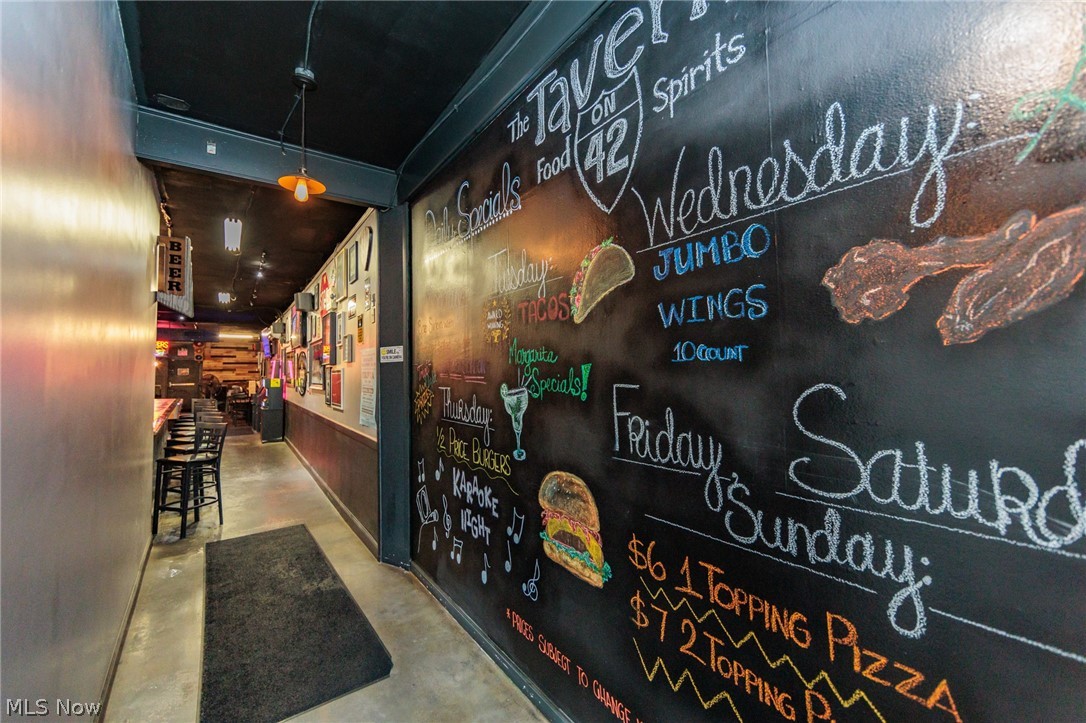 The Tavern
ON
42
Food
Spirits
Daily Specials
Tuesday:
TACOS
Margarita
Specials!
Thursday:
½ PRICE BURGERS
KARAOKE
NIGHT
Wednesday:
JUMBO
WINGS
10 COUNT
Friday, Saturd
Sunday:
$6 1 TOPPING PIZZA
$7 2 TOPPING P
* PRICES SUBJECT TO CHANGE
BEER
MLS Now